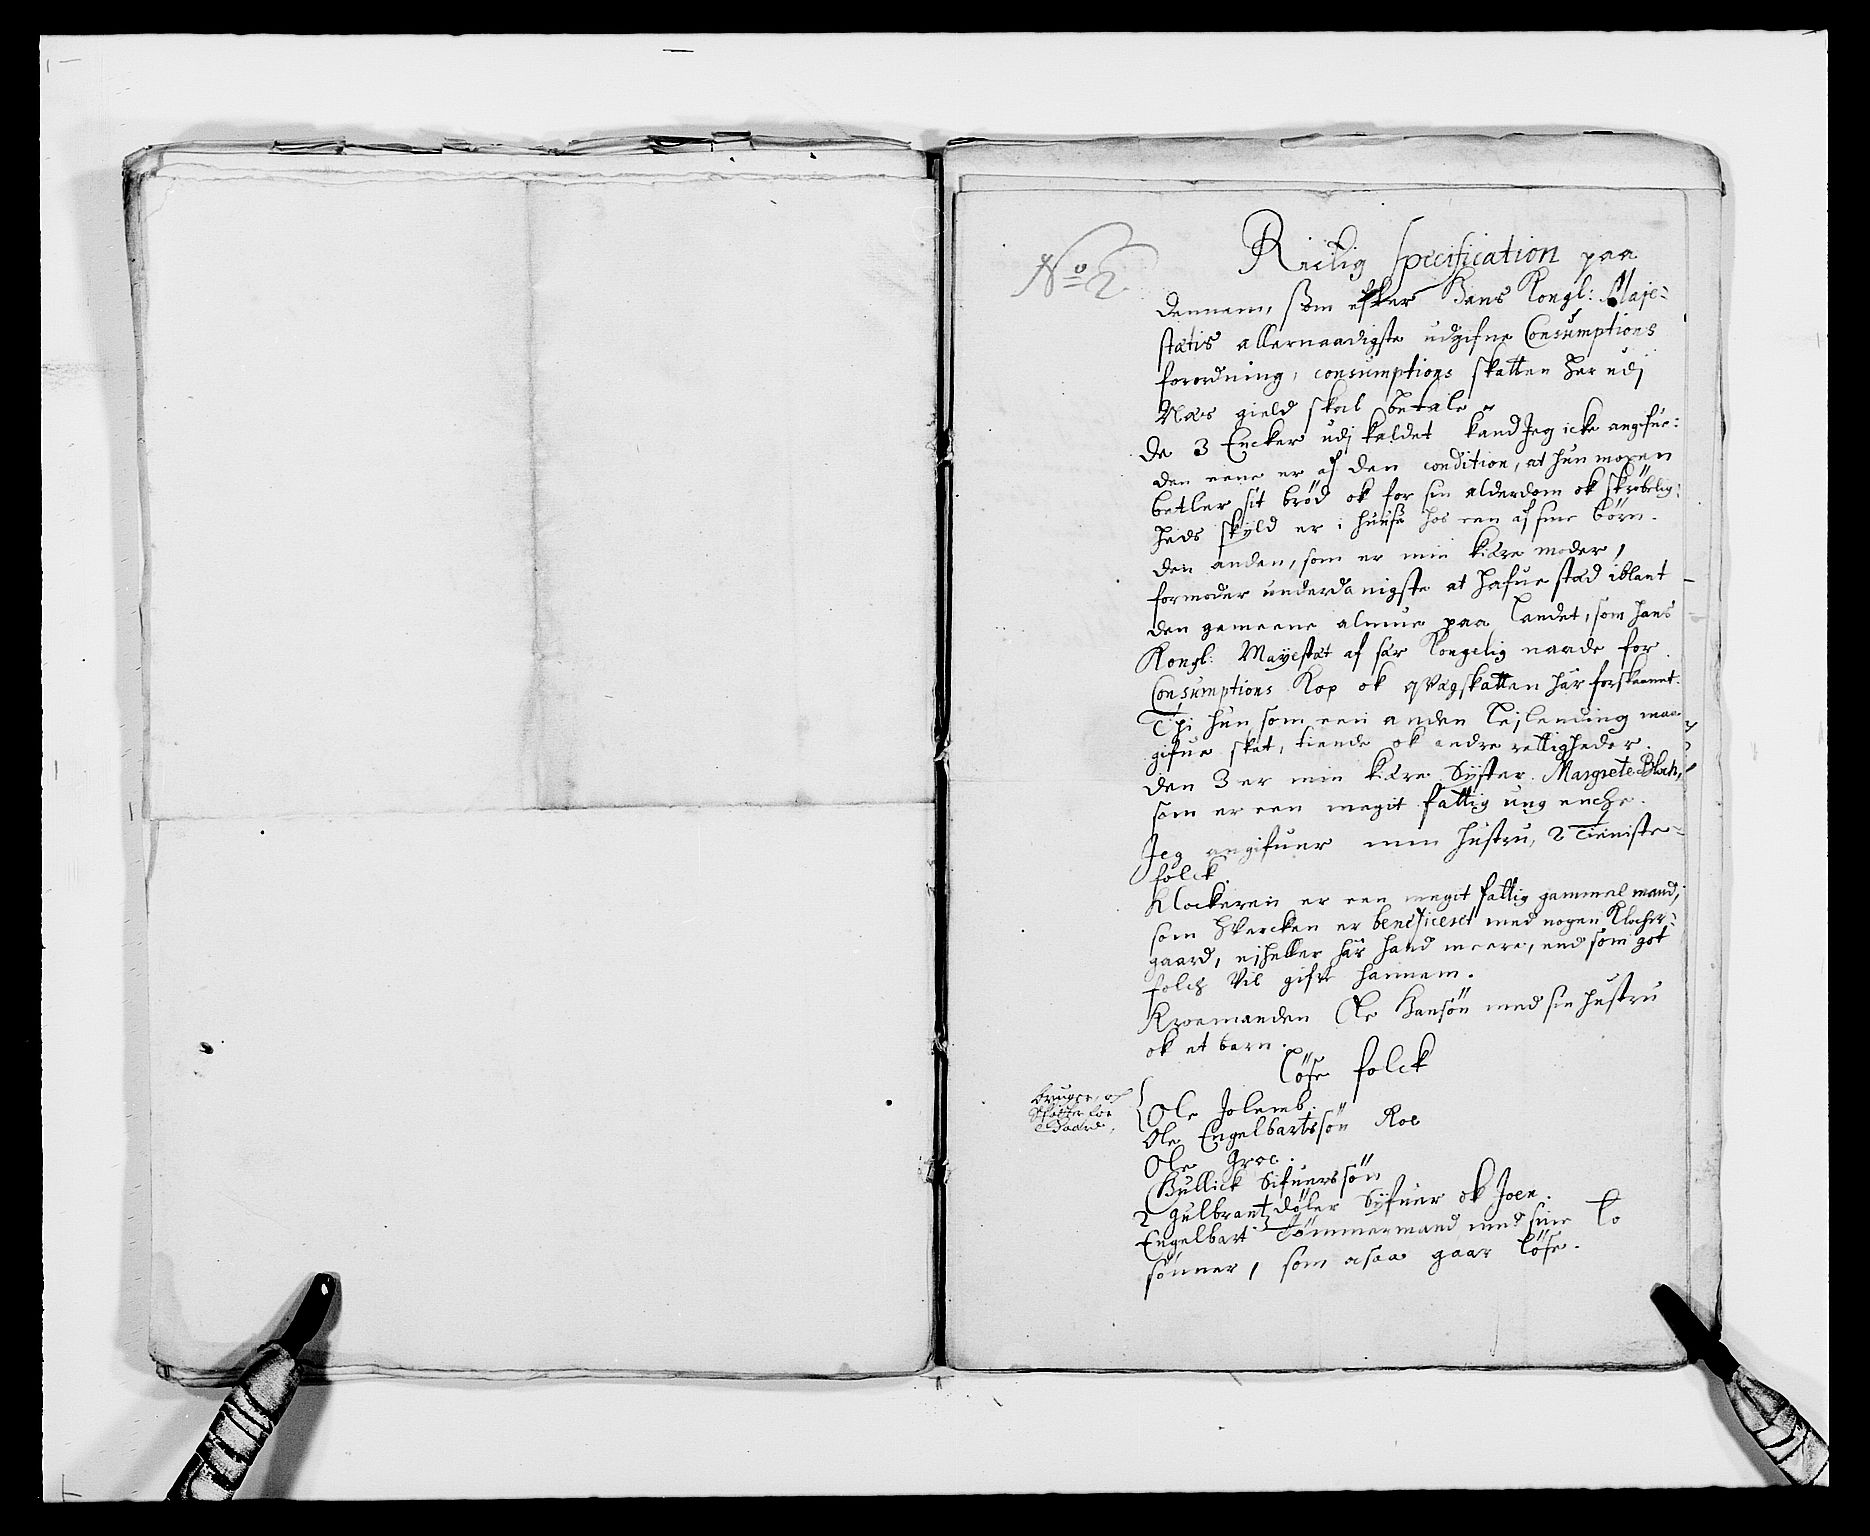 No 2.
Rictig specification paa
dennem, som efter Hans Kongl: Maje-
stætis allernaadigste udgifne Consumptions
forordning, consumptions skatten her udj
Næs gield skal betale.
De 3 Encker udj kaldet kand Jeg icke angifue:
den eene er af den condition, at hun moxen
betler sit brød ok for sin alderdom ok skrøbelig:
heds skyld er i huuse hos een af sine børn.
den anden, som er min kiære moder,
formoder underdanigste at hafue stæd iblant
den gemeene almue paa Landet, som hans
Kongl: Mayestæt af sær Kongelig naade for
Consumptions Kop ok qvægskatten här forskaanet.
Thi hun som een anden Lejlending maa
gifue skat, tiende ok andre rettigheder.
den 3 er min kiære Syster Margrete Bloch,
som er een meget fattig ung encke.
Jeg angifuer min hustru, 2 Tieniste-
folck.
Klockeren er een meget fattig gammel mand,
som hvercken er beneficeret med nogen Klocker-
gaard, ejheller här hand meere, end som got
folck vil gifve hannem.
Kroemanden Ole Hansøn med sin hustru
ok et barn.
Løse folck
bruger, oc
Skatter for
Gaard,
Ole Jolemb.
Ole Engelbartssøn Roe
Ole Groe.
Gullick Sifuerssøn
2 gulbrantzdøler Syfuer ok Joen.
Engelbart Tømmermand med sine To
sønner, som osaa gaar løse.